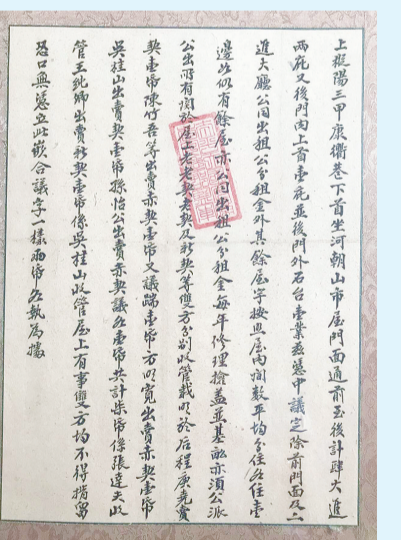 上擬陽三甲庚衖巷下首坐河朝山市屋門面通前至後計肆大進
兩庑又後門內上首壹庑並後門外石台壹業茲憑中議定除前門面及二
進大廳公同出租公分租金外其餘屋宇按照屋內間數平均分住各住壹
邊此似有餘屋亦公同出租公分租金每年修理撿蓋並基亦須公派
公出所有関於屋上老契老契及新契等雙方分別收管載明於后程庚堯賣
契壹帋陳竹吾等出賣赤契壹帋又議踹壹帋方明寬出賣赤契壹帋
吳桂山出賣契壹帋孫怡公出賣赤契議各壹帋共計柴帋係張達夫收
管王純卿出賣新契壹帋係吳桂山收管屋上有事雙方均不得揹留
恐口無憑立此嵌合議字一樣兩帋各執為據